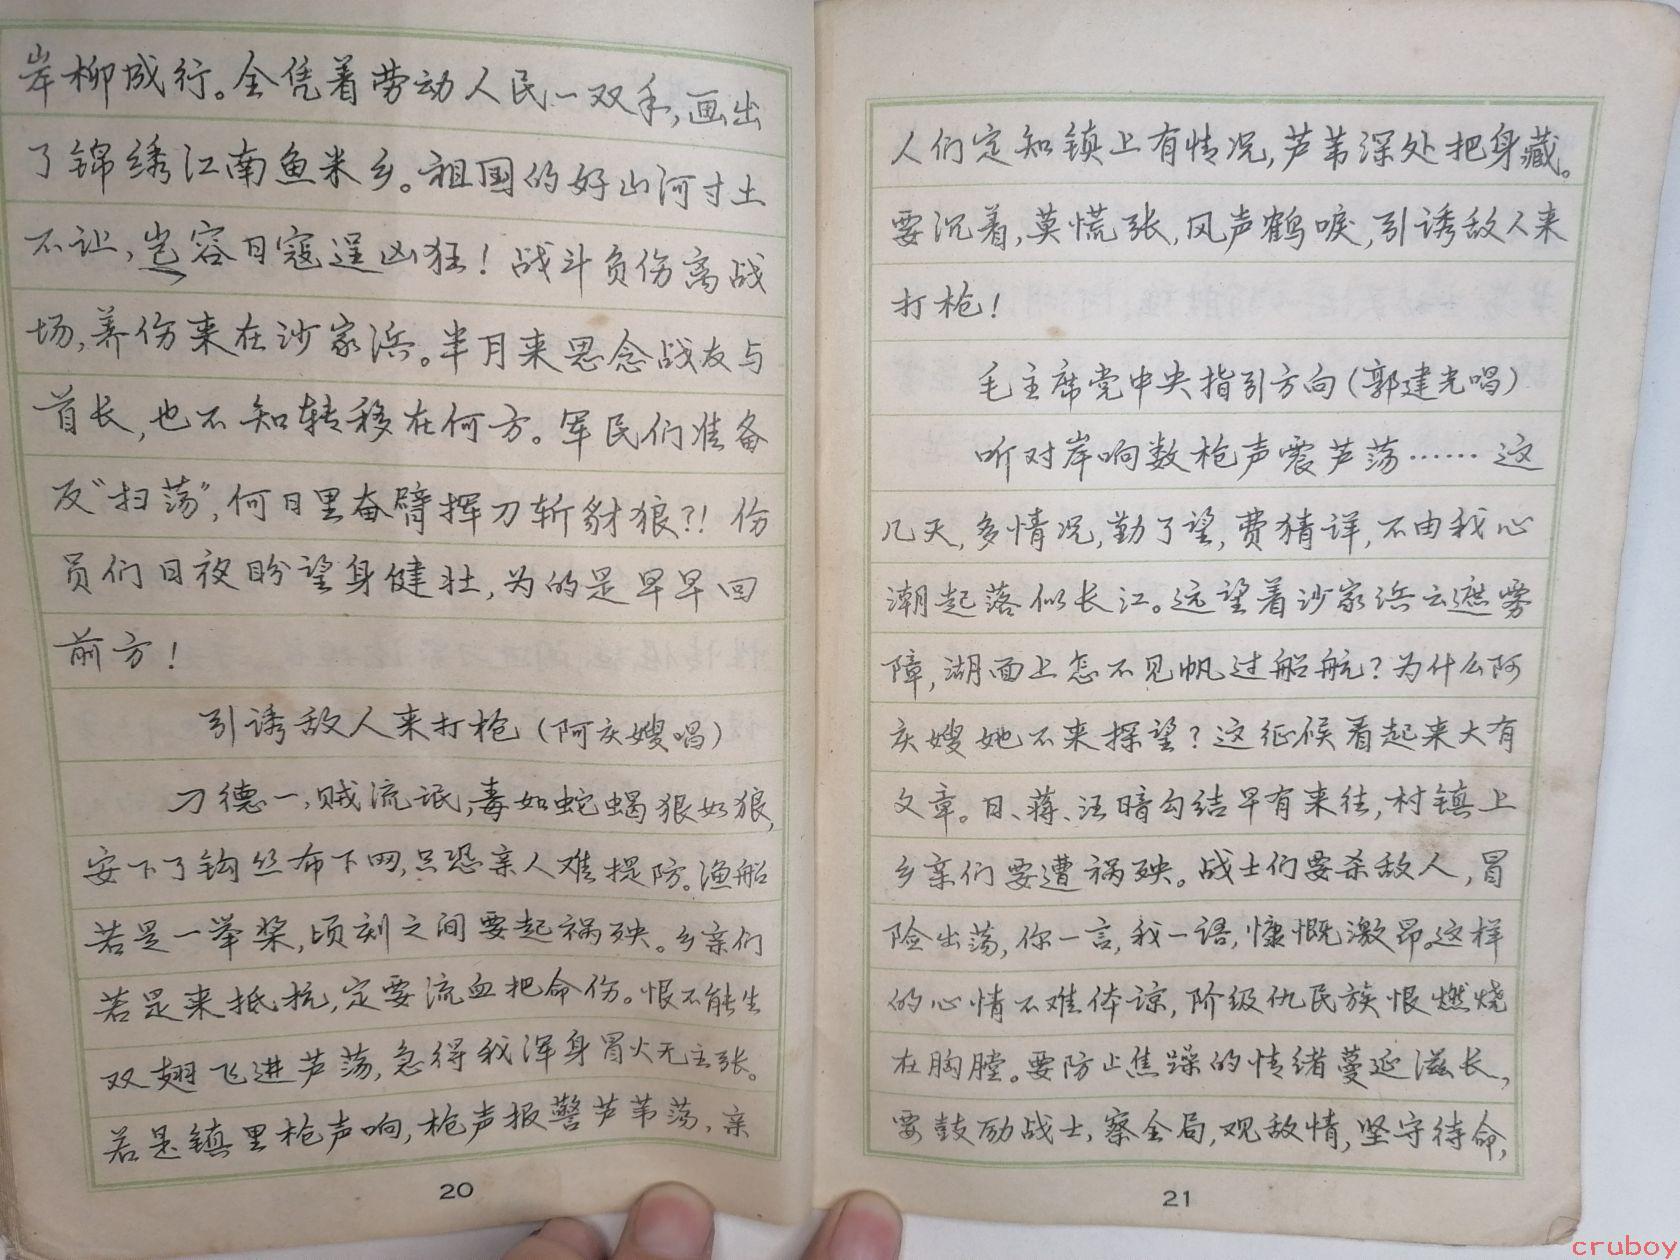 岸柳成行。全凭着劳动人民一双手，画出
了锦绣江南鱼米乡。祖国的好山河寸土
不让，岂容日寇逞凶狂！战斗负伤离战
场，养伤来在沙家浜。半月来思念战友与
首长，也不知转移在何方。军民们准备
反“扫荡”，何日里奋臂挥刀斩豺狼？！伤
员们日夜盼望身健壮，为的是早早回
前方！
引诱敌人来打枪（阿庆嫂唱）
刁德一，贼流氓，毒如蛇蝎狠如狼，
安下了钩丝布下网，只恐亲人难提防。渔船
若是一举桨，顷刻之间要起祸殃。乡亲们
若是来抵抗，定要流血把命伤。恨不能生
双翅飞进芦荡，急得我浑身冒火无主张。
若是镇里枪声响，枪声报警芦苇荡，亲
20
人们定知镇上有情况，芦苇深处把身藏。
要沉着，莫慌张，风声鹤唳，引诱敌人来
打枪！
毛主席党中央指引方向（郭建光唱）
听对岸响数枪声震芦荡……这
几天，多情况，勤了望，费猜详，不由我心
潮起落似长江。远望着沙家浜云遮雾
障，湖面上怎不见帆过船航？为什么阿
庆嫂她不来探望？这征候看起来大有
文章。日、蒋、汪暗勾结早有来往，村镇上
乡亲们要遭祸殃。战士们要杀敌人，冒
险出荡，你一言，我一语，慷慨激昂。这样
的心情不难体谅，阶级仇民族恨燃烧
在胸膛。要防止焦躁的情绪蔓延滋长，
要鼓励战士，察全局，观敌情，坚守待命，
21
cruboy